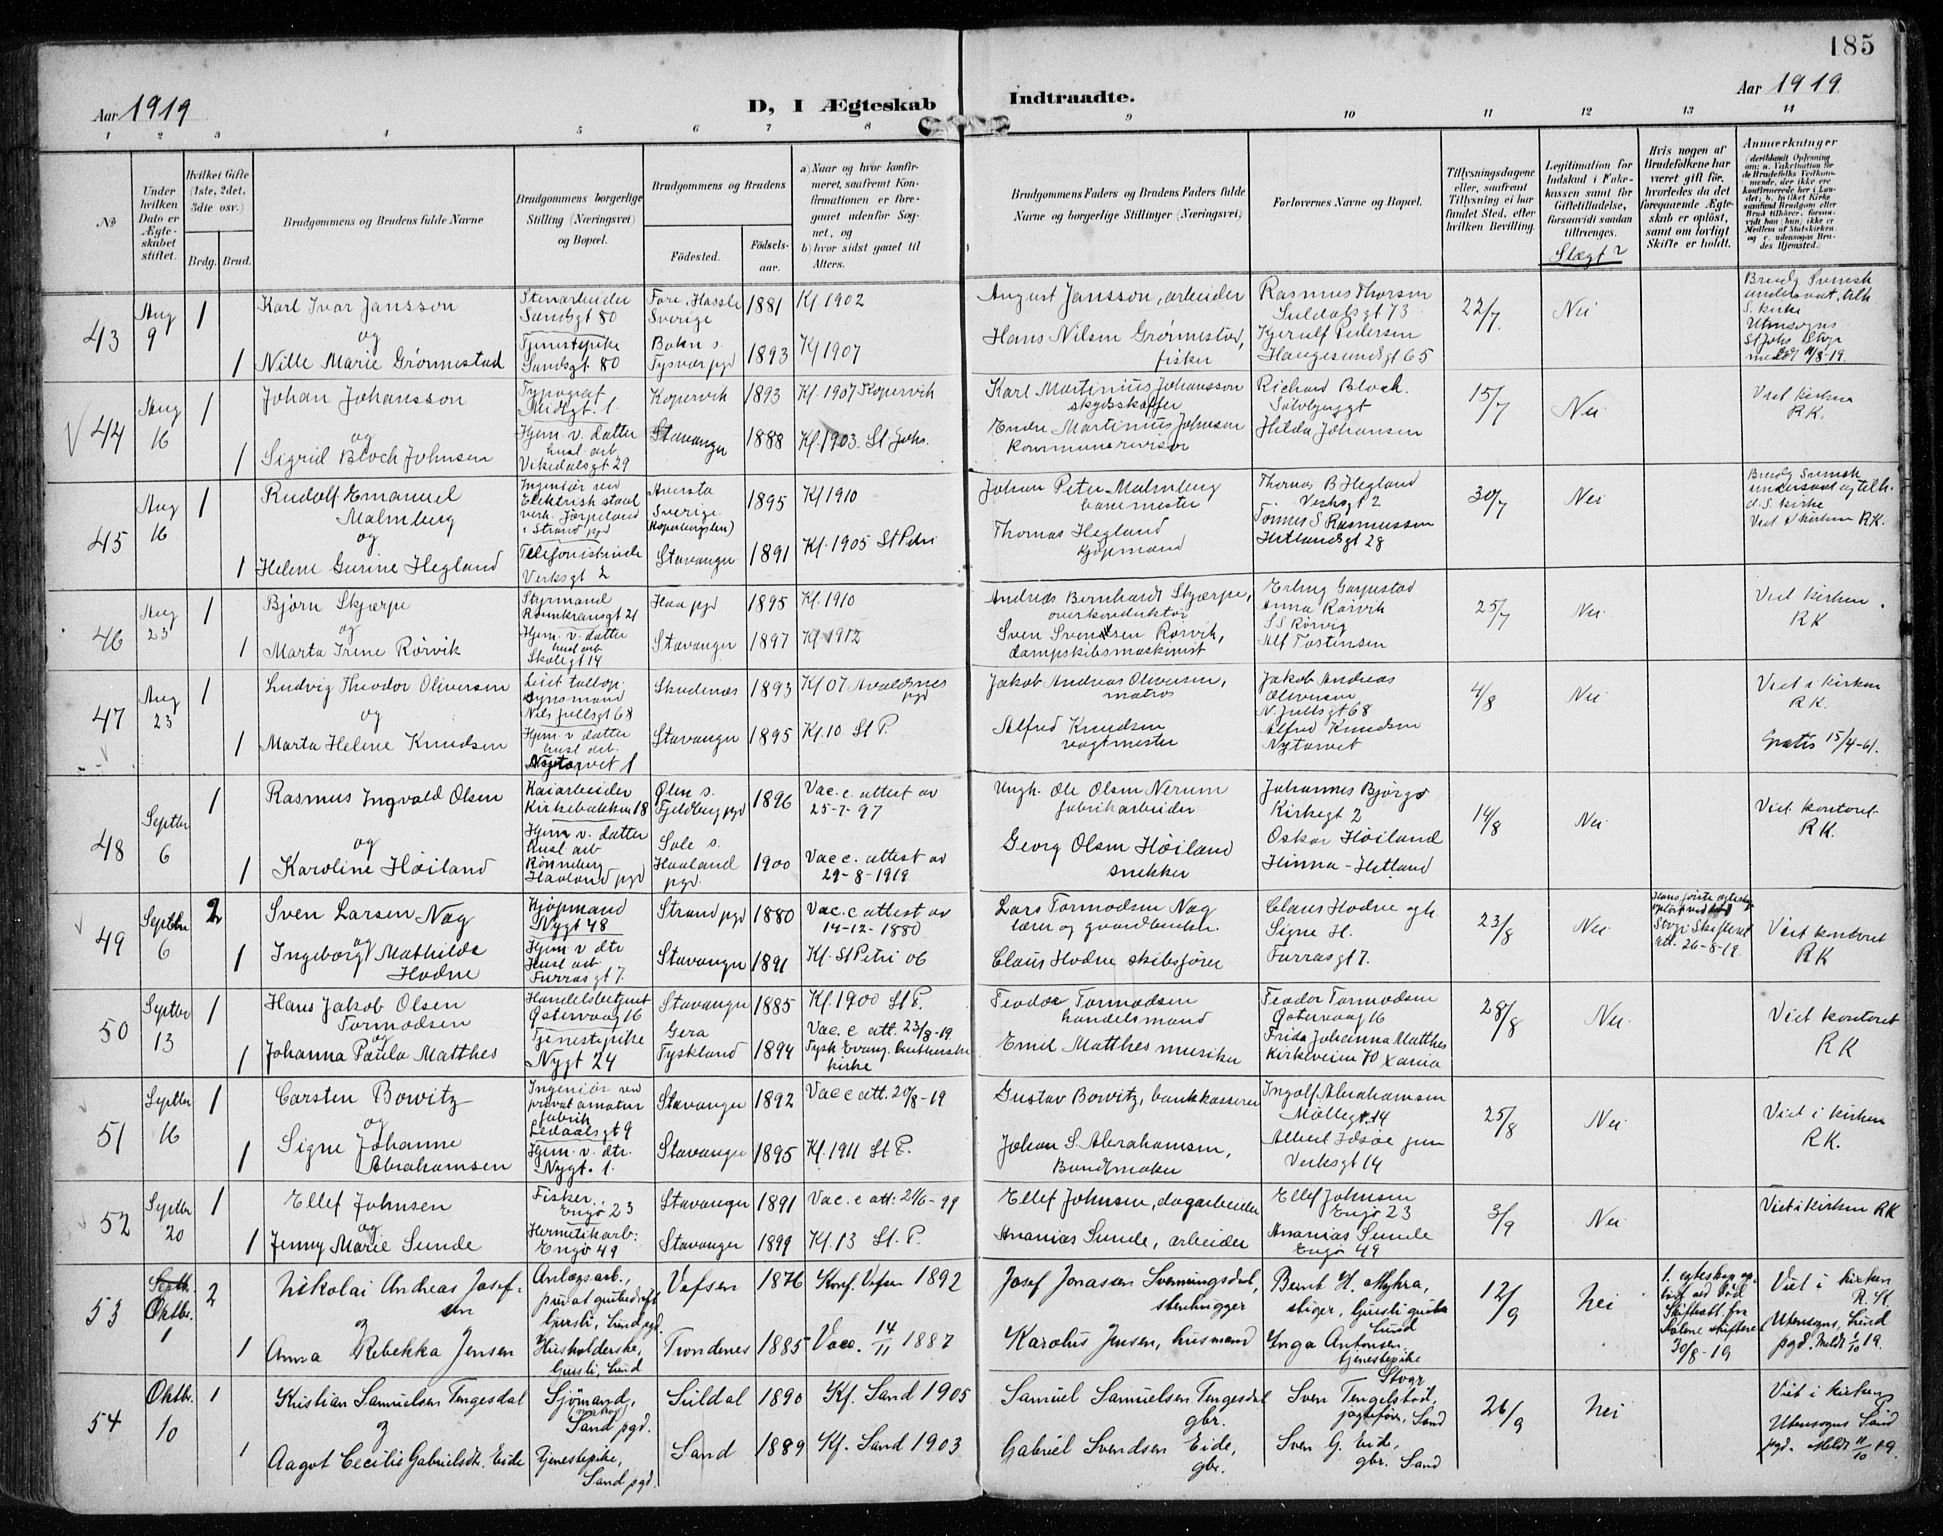 185
Aar 1919
D, I Ægteskab Indtraadte.
Aar 1919
1 2 3 4 5 6 7 8 9 10 11 12 13 14
№
Under hvilken Dato er Ægteskabet stiftet.
Hvilket Gifte (1ste, 2det, 3die osv.)
Brdg. Brud.
Brudgommens og Brudens fulde Navne
Brudgommens borgerlige Stilling (Næringsvei) og Bopæl.
Brudgommens og Brudens
Fødested.
Fødselsaar.
a) Naar og hvor konfirmeret, saafremt Konfirmationen er foregaaet udenfor Sognet, og
b) hvor sidst gaaet til Alters.
Brudgommens Faders og Brudens Faders fulde Navne og borgerlige Stillinger (Næringsvei)
Forlovernes Navne og Bopæl.
Tillysningsdagene eller, saafremt Tillysning ei har fundet Sted, efter hvilken Bevilling.
Legitimation for Indskud i Enkekassen samt for Giftetilladelse, forsaavidt saadan tiltrænges.
Slægt?
Hvis nogen af Brudefolkene har været gift før, hvorledes da det foregaaende Ægteskab er opløst, samt om lovligt Skifte er holdt.
Anmerkninger
43 Aug 9 1 Karl Ivar Jansson
og
1 Nille Marie Grønnestad
Stenarbeider Sandsgt 80
Tjenestepike Sandsgt 80
Fore, Hassle Sverige 1881 Kf. 1902
Bokn s. Tysvær pgd 1893 Kf 1907
August Jansson, arbeider
Hans Nilsen Grønnestad, fisker
Rasmus Thorsen Suldalsgt 73
Kjerulf Pedersen Haugesundsgt 65
22/7. Nei
Brudg Svensk undersaat, tilh. S. kirke
Utensogns St Johs Stvgr
44 Aug 16 1 Johan Johansson
og
1 Sigrid Bloch Johnsen
Typograf Midtgt. 1.
Hjem. v. datter husl arb Vikedalsgt 29
Kopervik 1893 Kf. 1907 Kopervik
Stavanger 1888 Kf. 1903. St Johs.
Karl Martinius Johansson skydsskaffer
Endre Martinius Johnson Kommunerevisor
Richard Bloch. Sølvbergt
Hilda Johansen
15/7 Nei
Viet kirken RK.
45 Aug 16 1 Rudolf Emanuel Malmberg
og
1 Helene Gurine Hegland
Ingeniør ved Elektrisk staal verk. Jørpeland i Strand pgd
Telefonistinde Verksgt 2
Avesta Sverige 1895 Kf 1910
Stavanger 1891 Kf. 1905 St Petri
Johan Peter Malmberg banemester
Thomas Hegland Kjøpmand
Thomas B Hegland Verksgt 2
Tønnes S Rasmussen Hetlandsgt 28
30/7 Nei
Brudg Svensk undersaat og tilh. d. S. kirke
Viet i kirken RK.
46 Aug 23 1 Bjørn Skjærpe
og
1 Marta Irene Rørvik
Styrmand Rosenkransgt 21
Hjem. v. datter husl arb Skolegt 14
Haa pgd 1895 Kf. 1910
Stavanger 1897 Kf 1912
Andreas Bernhardt Skjærpe, overkonduktør
Sven Svendsen Rørvik, dampskibsmaskinist
Erling Garpestad
Anna Rørvik
S S Rørvig
Alf Tostensen
25/7 Nei
Viet kirken RK
47 Aug 23 1 Ludvig Theodor Oliversen
og
1 Marta Helene Knudsen
Nils Juelsgt 68
Hjem. v datter husl arb. Nytorvet 1
Skudenes 1893 Kf 07 Avaldsnes pgd
Stavanger 1895 Kf. 10 St P.
Jakob Andreas Oliversen, matros
Alfred Knudsen vagtmester
Jakob Andreas Oliversen N. Juelsgt 68
Alfred Knudsen Nytorvet
4/8 Nei
Viet i kirken RK.
Gratis 15/4-61.
48 Septbr 6 1 Rasmus Ingvald Olsen
og
1 Karoline Høiland
Kaiarbeider Kirkebakken 18
Hjem v. datter husl arb Rønneberg Haaland pgd
Ølen s. Fjeldberg pgd 1896 Vac. c. attest av 25-7-97
Sole s. Haaland pgd. 1900 Vac c. attest av 29-8-1919
Ungk. Ole Olsen Nerum fabrikarbeider
Georg Olsen Høiland snekker
Johannes Bjørgo Kirkegt 2
Oskar Høiland Hinna - Hetland
14/8 Nei
Viet kontoret RK.
49 Septbr 6 2 Sven Larsen Nag
og
1 Ingeborg Mathilde Hodne
Kjøpmand Nygt 48
Hjem v dtr Husl arb Furrasgt 7.
Strand pgd 1880 Vac. c attest av 14-12-1880
Stavanger 1891 Kf. St Petri 06
Lars Tormodsen Nag lærer og gaardbruker.
Claus Hodne skibsfører
Claus Hodne og Signe H. Furrasgt 7.
23/8 Nei
Hans første egteskap opløst ved død
Stvgr Skifteret att. 26-8-19.
Viet kontoret RK
50 Septbr 13 1 Hans Jakob Olsen Tormodsen
og
1 Johanna Paula Matthes
Handelsbetjent Østervaag 16
Tjenestepike Nygt 24
Stavanger 1885 Kf. 1900 St P.
Gera Tyskland 1894 Vac. c att. 23/8-19 Tysk Evang. Lutherske kirke
Teodor Tormodsen handelsmand
Emil Matthes musiker
Teodor Tormodsen Østervaag 16
Frida Johanna Matthes Kirkeveien 70 Xania
28/8 Nei
Viet kontoret RK
51 Septbr 16 1 Carsten Bowitz
og
1 Signe Johanne Abrahamsen
Ingeniør ved privat amatur fabrik Ledaalsgt 9
Hjem. v. dtr. Nygt. 1.
Stavanger 1892 Vac c att. 20/8-19
Stavanger 1895 Kf. 1911 St P.
Gustav Bowitz, bankkasserer
Johan S. Abrahamsen, Bundtmaker
Ingolf Abrahamsen Møllegt. 14
Albert Idsøe jun Verksgt 14
25/8 Nei
Viet i kirken RK.
52 Septbr 20 1 Ellef Johnsen
og
1 Jenny Marie Sunde
Fisker Engø 23
Hermetikarb: Engø 49
Stavanger 1891 Vac. c att: 21/6-99
Stavanger 1899 Kf. 13 St. P.
Ellef Johnsen, dagarbeider
Ananias Sunde, arbeider
Ellef Johnsen Engø 23
Ananias Sunde Engø 49
3/9 Nei
Viet i kirken RK
53 Septb. Oktbr. 1 2 Nikolai Andreas Josefsen
og
1 Anna Rebekka Jensen
Anlægsarb., privat grubedrift Gursli, Lund pgd.
Husholderske, Gursli, Lund
Vefsen 1876 Konf. Vefsen 1892
Trondenes 1885 Vacc. 14/11 1887
Josef Jonassen Svenningsdal, stenhugger
Karolius Jensen, husmand
Bernt H. Myhra, stiger, Gursli grube Lund
Inga Antonsen tjenestepike Stvgr
12/9 Nei
1. egteskap opløst ved død
30/8-19
Viet i kirken R. K.
Utensogns, Lund pgd. Meldt 1/10 19.
54 Oktbr. 10 1 Kristian Samuelsen Tengesdal
og
1 Aagot Cecilie Gabrielsdtr. Eide
Sjømand, matros Sand pgd.
Tjenestepike, Sand pgd.
Suldal 1890 Kf. Sand 1905
Sand 1889 Kf. Sand 1903
Samuel Samuelsen Tengesdal gbr.
Gabriel Svendsen Eide, gbr.
Sven Tengelsdal, jagtefører, Sand
Sven G. Eide, gbr. Sand
26/9 Nei
Viet i kirken
Utensogns Sand pgd. Meldt 11/10 19.